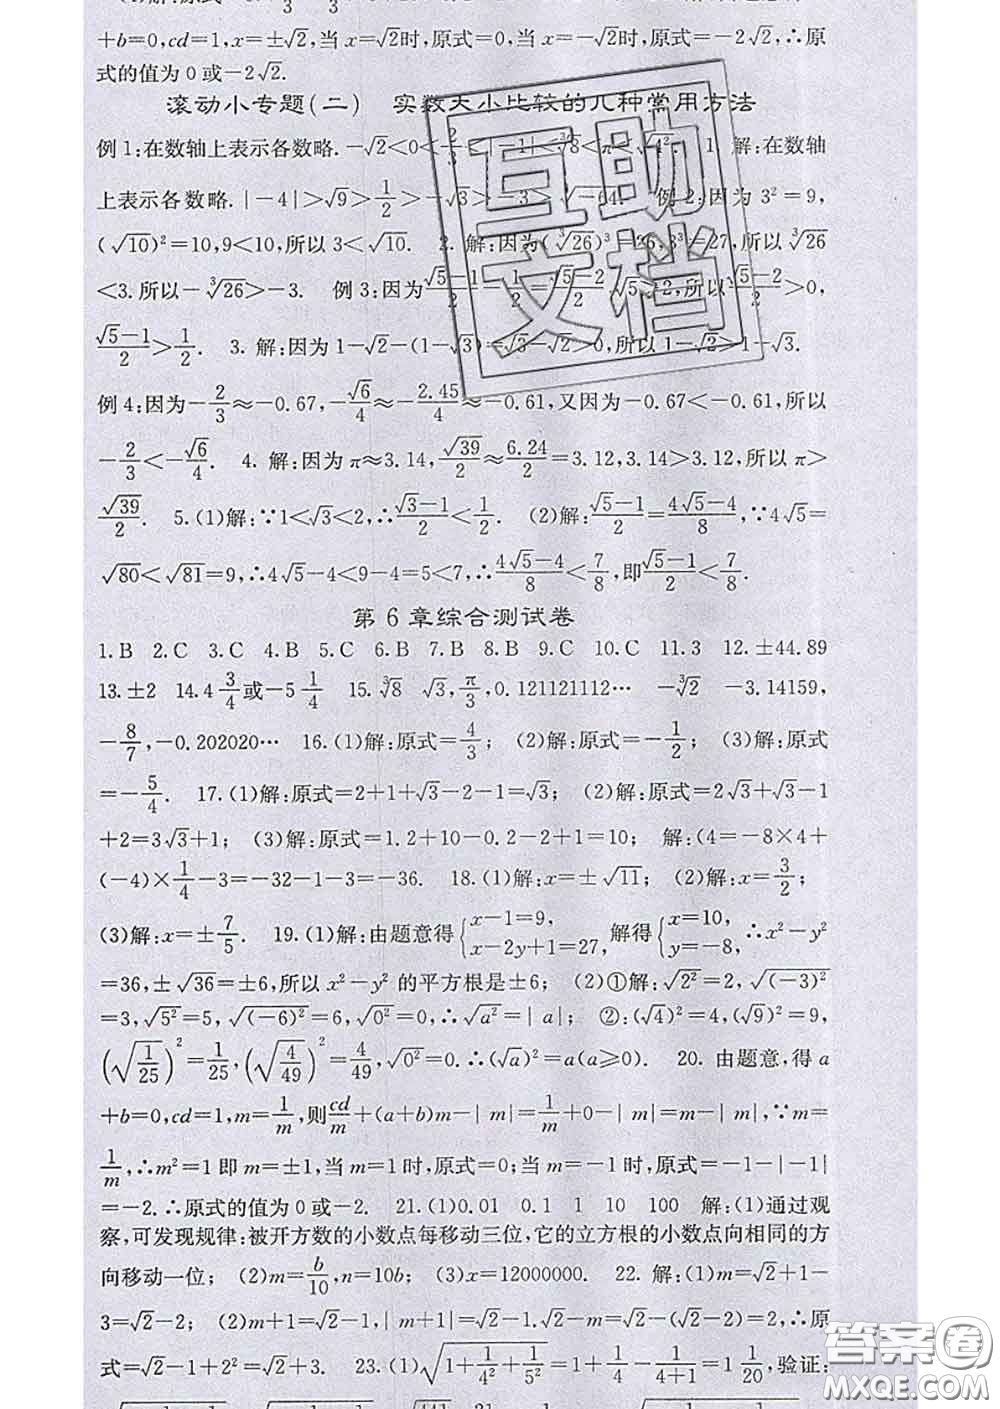 +b=0,cd=1,x=±√2,当 x=√2时,原式=0,当 x=-√2时,原式=-2√2,∴原
式的值为 0 或-2√2.
滚动小专题(二) 实数大小比较的几种常用方法
例 1:在数轴上表示各数略.-√2<0<2/3<|-1|<∛8<π<√4². 1. 解:在数轴
上表示各数略.|-4|>√9>1/2>-√3>-3> 例 2:因为 3²=9,
(√10)²=10,9<10,所以 3<√10. 2. 解:因为(∛26)³=26,3³=27,所以∛26
<3.所以-∛26>-3. 例 3:因为(√5-1)/2-1/2=(√5-2)/2,√5>2,所以(√5-2)/2>0,
(√5-1)/2>1/2. 3. 解:因为 1-√2-(1-√3)=√3-√2>0,所以 1-√2>1-√3.
例 4:因为-2/3≈-0.67,-√6/4≈-2.45/4≈-0.61,又因为-0.67<-0.61,所以
-2/3<-√6/4. 4. 解:因为 π≈3.14,√39/2≈6.24/2=3.12,3.14>3.12,所以 π>
√39/2. 5.(1)解:∵1<√3<2,∴(√3-1)/2<1/2. (2)解:(√5-1)/2=(4√5-4)/8,∵4√5=
√80<√81=9,∴4√5-4<9-4=5<7,∴(4√5-4)/8<7/8,即(√5-1)/2<7/8.
第 6 章综合测试卷
1.B 2.C 3.C 4.B 5.C 6.B 7.B 8.B 9.C 10.C 11.3 12.±44.89
13.±2 14.4 3/4或-5 1/4 15.∛8 √3,π/3,0.121121112… -∛2 -3.14159,
-8/7,-0.202020… 16.(1)解:原式=4/3; (2)解:原式=-1/2; (3)解:原式
=-5/4. 17.(1)解:原式=2+1+√3-2-1=√3; (2)解:原式=2√3+√3-1
+2=3√3+1; (3)解:原式=1.2+10-0.2-2+1=10; 解:(4=-8×4+
(-4)×1/4-3=-32-1-3=-36. 18.(1)解:x=±√11; (2)解:x=3/2;
(3)解:x=±7/5. 19.(1)解:由题意得{x-1=9, x-2y+1=27,解得{x=10, y=-8,∴x²-y²
=36,±√36=±6,所以 x²-y² 的平方根是±6; (2)①解:√2²=2,√(-3)²
=3,√5²=5,√(-6)²=6,√0²=0,∴√a²=|a|; ②:(√4)²=4,(√9)²=9,
(√(1/25))²=1/25,(√(4/49))²=4/49,√0²=0.∴(√a)²=a(a≥0). 20. 由题意,得 a
+b=0,cd=1,m=1/m,则cd/m+(a+b)m-|m|=1/m+0-|m|=m-|m|,∵m=
1/m,∴m²=1 即 m=±1,当 m=1 时,原式=0;当 m=-1 时,原式=-1-|-1|
=-2.∴原式的值为 0 或-2. 21.(1)0.01 0.1 1 10 100 解:(1)通过观
察,可发现规律:被开方数的小数点每移动三位,它的立方根的小数点向相同的方
向移动一位; (2)m=b/10,n=10b; (3)x=12000000. 22. 解:(1)m=√2+1-
3=√2-2; (2)m+1=√2-1,|m+1|=√2-1.√2-m=√2-(√2-2)=2,∴原
式=√2-1+2²=√2+3. 23.(1)√(1+1/4²+1/5²)=1+1/4-1/(4+1)=1 1/20,验证:
互助
文档
答案卷
MXQE.COM